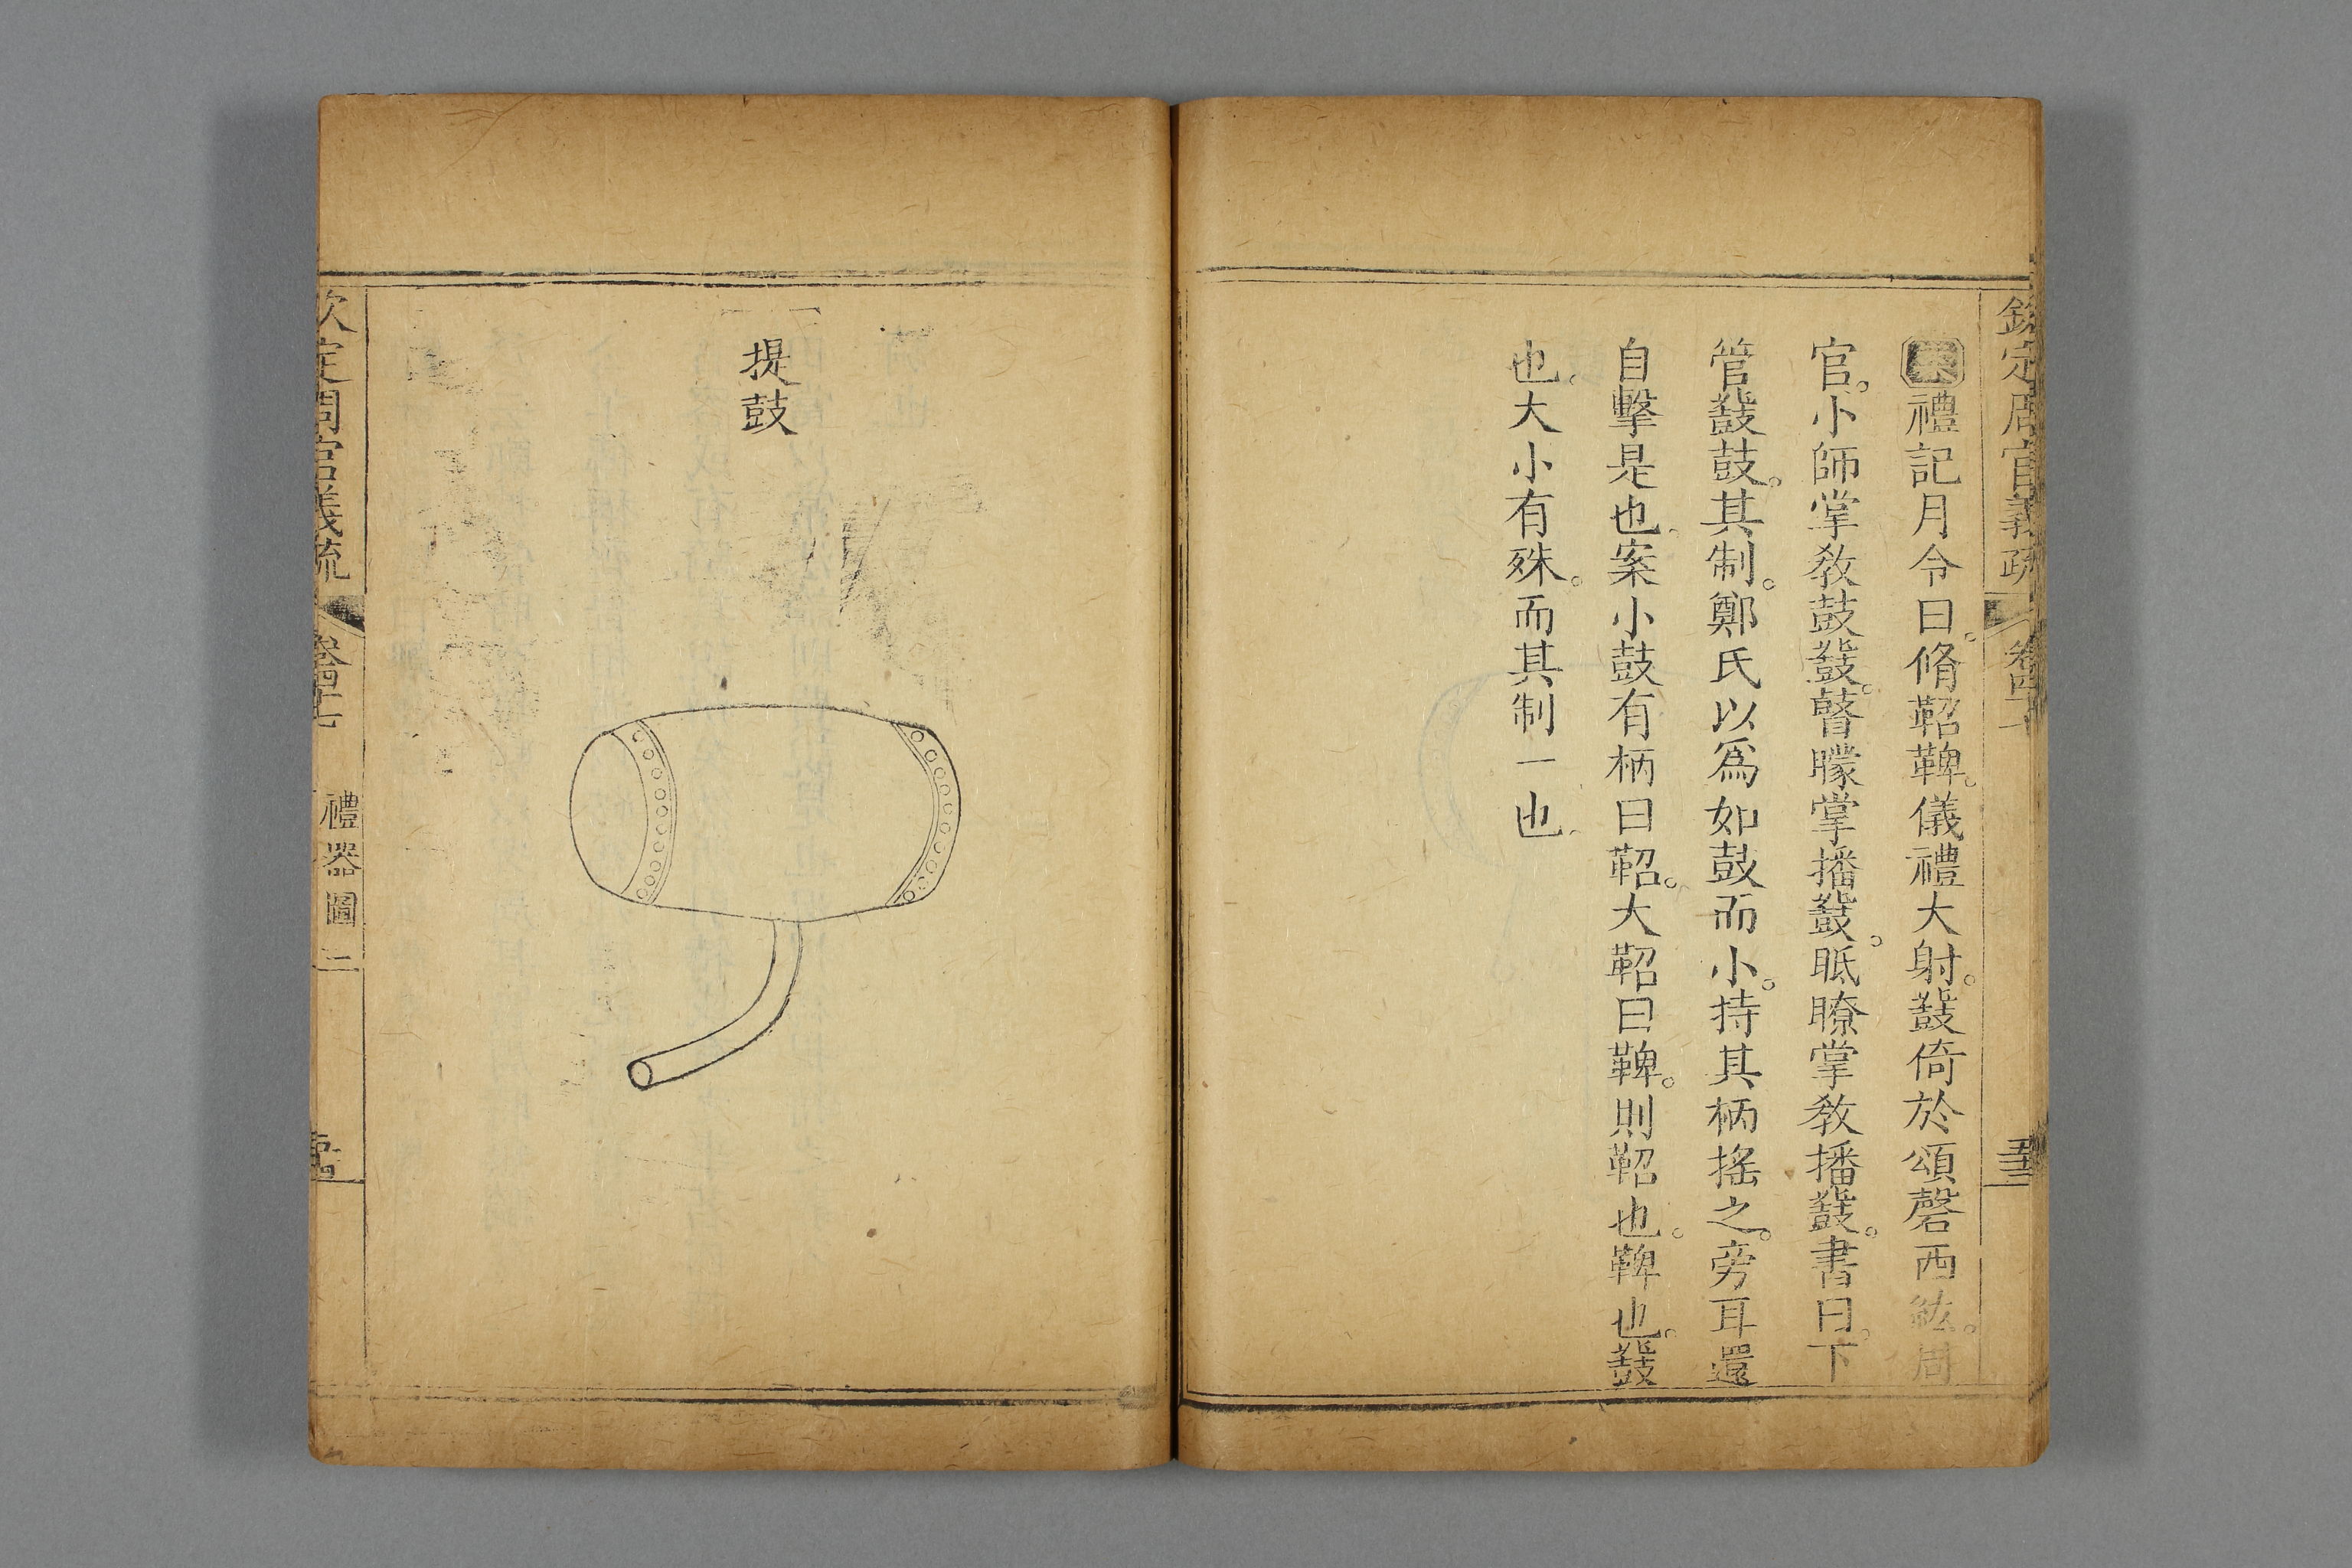 欽定周官義疏 卷四十
禮記月令曰。脩鞀鞞。儀禮大射。鼗倚於頌磬西紘。周
官。小師掌教鼓鼗。瞽矇掌播鼗。眡瞭掌教播鼗。書曰。下
管鼗鼓。其制。鄭氏以爲如鼓而小。持其柄搖之。旁耳還
自擊是也。案小鼓有柄曰鞀。大鞀曰鞞。則鞀也。鞞也。鼗
也。大小有殊。而其制一也。
提鼓
欽定周官義疏 禮器圖二